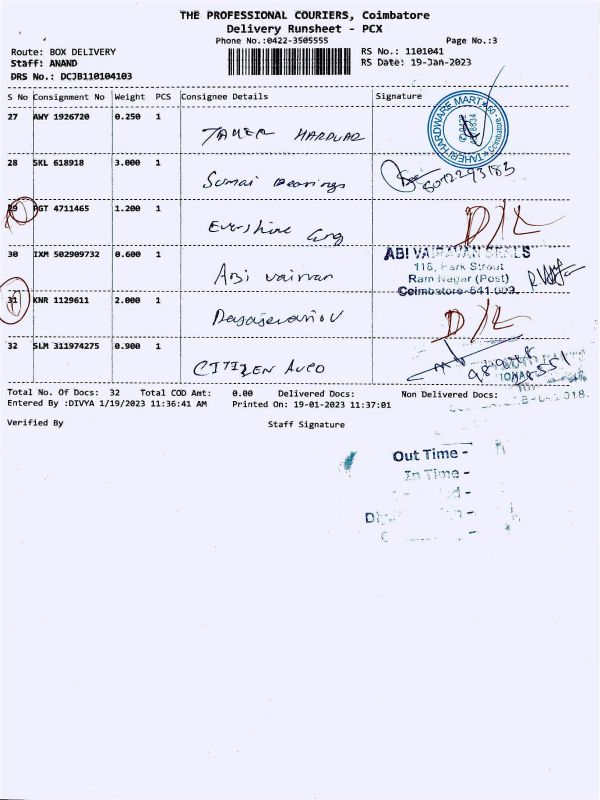 THE PROFESSIONAL COURIERS, Coimbatore
Delivery Runsheet - PCX
Phone No.:0422-3505555 Page No.:3
Route: BOX DELIVERY RS No.: 1101041
Staff: ANAND RS Date: 19-Jan-2023
DRS No.: DCJB110104103
S No Consignment No Weight PCS Consignee Details Signature
27 AWY 1926720 0.250 1
TAHER HARDWAR
TAHERI HARDWARE MART Coimbatore
28 SKL 618918 3.000 1
Sumai Bearings
29 PGT 4711465 1.200 1
Evershine Eng D/L
30 IXM 502909732 0.600 1
Abi vairvan
ABI VAIRAVAN SEALS
118, Park Street
Ram Nagar (Post)
Coimbatore-641 009.
31 KNR 1129611 2.000 1
D/L
32 SLM 311974275 0.900 1
CITIZEN AUTO
Total No. Of Docs: 32 Total COD Amt: 0.00 Delivered Docs: Non Delivered Docs:
Entered By :DIVYA 1/19/2023 11:36:41 AM Printed On: 19-01-2023 11:37:01
Verified By Staff Signature
Out Time -
In Time -